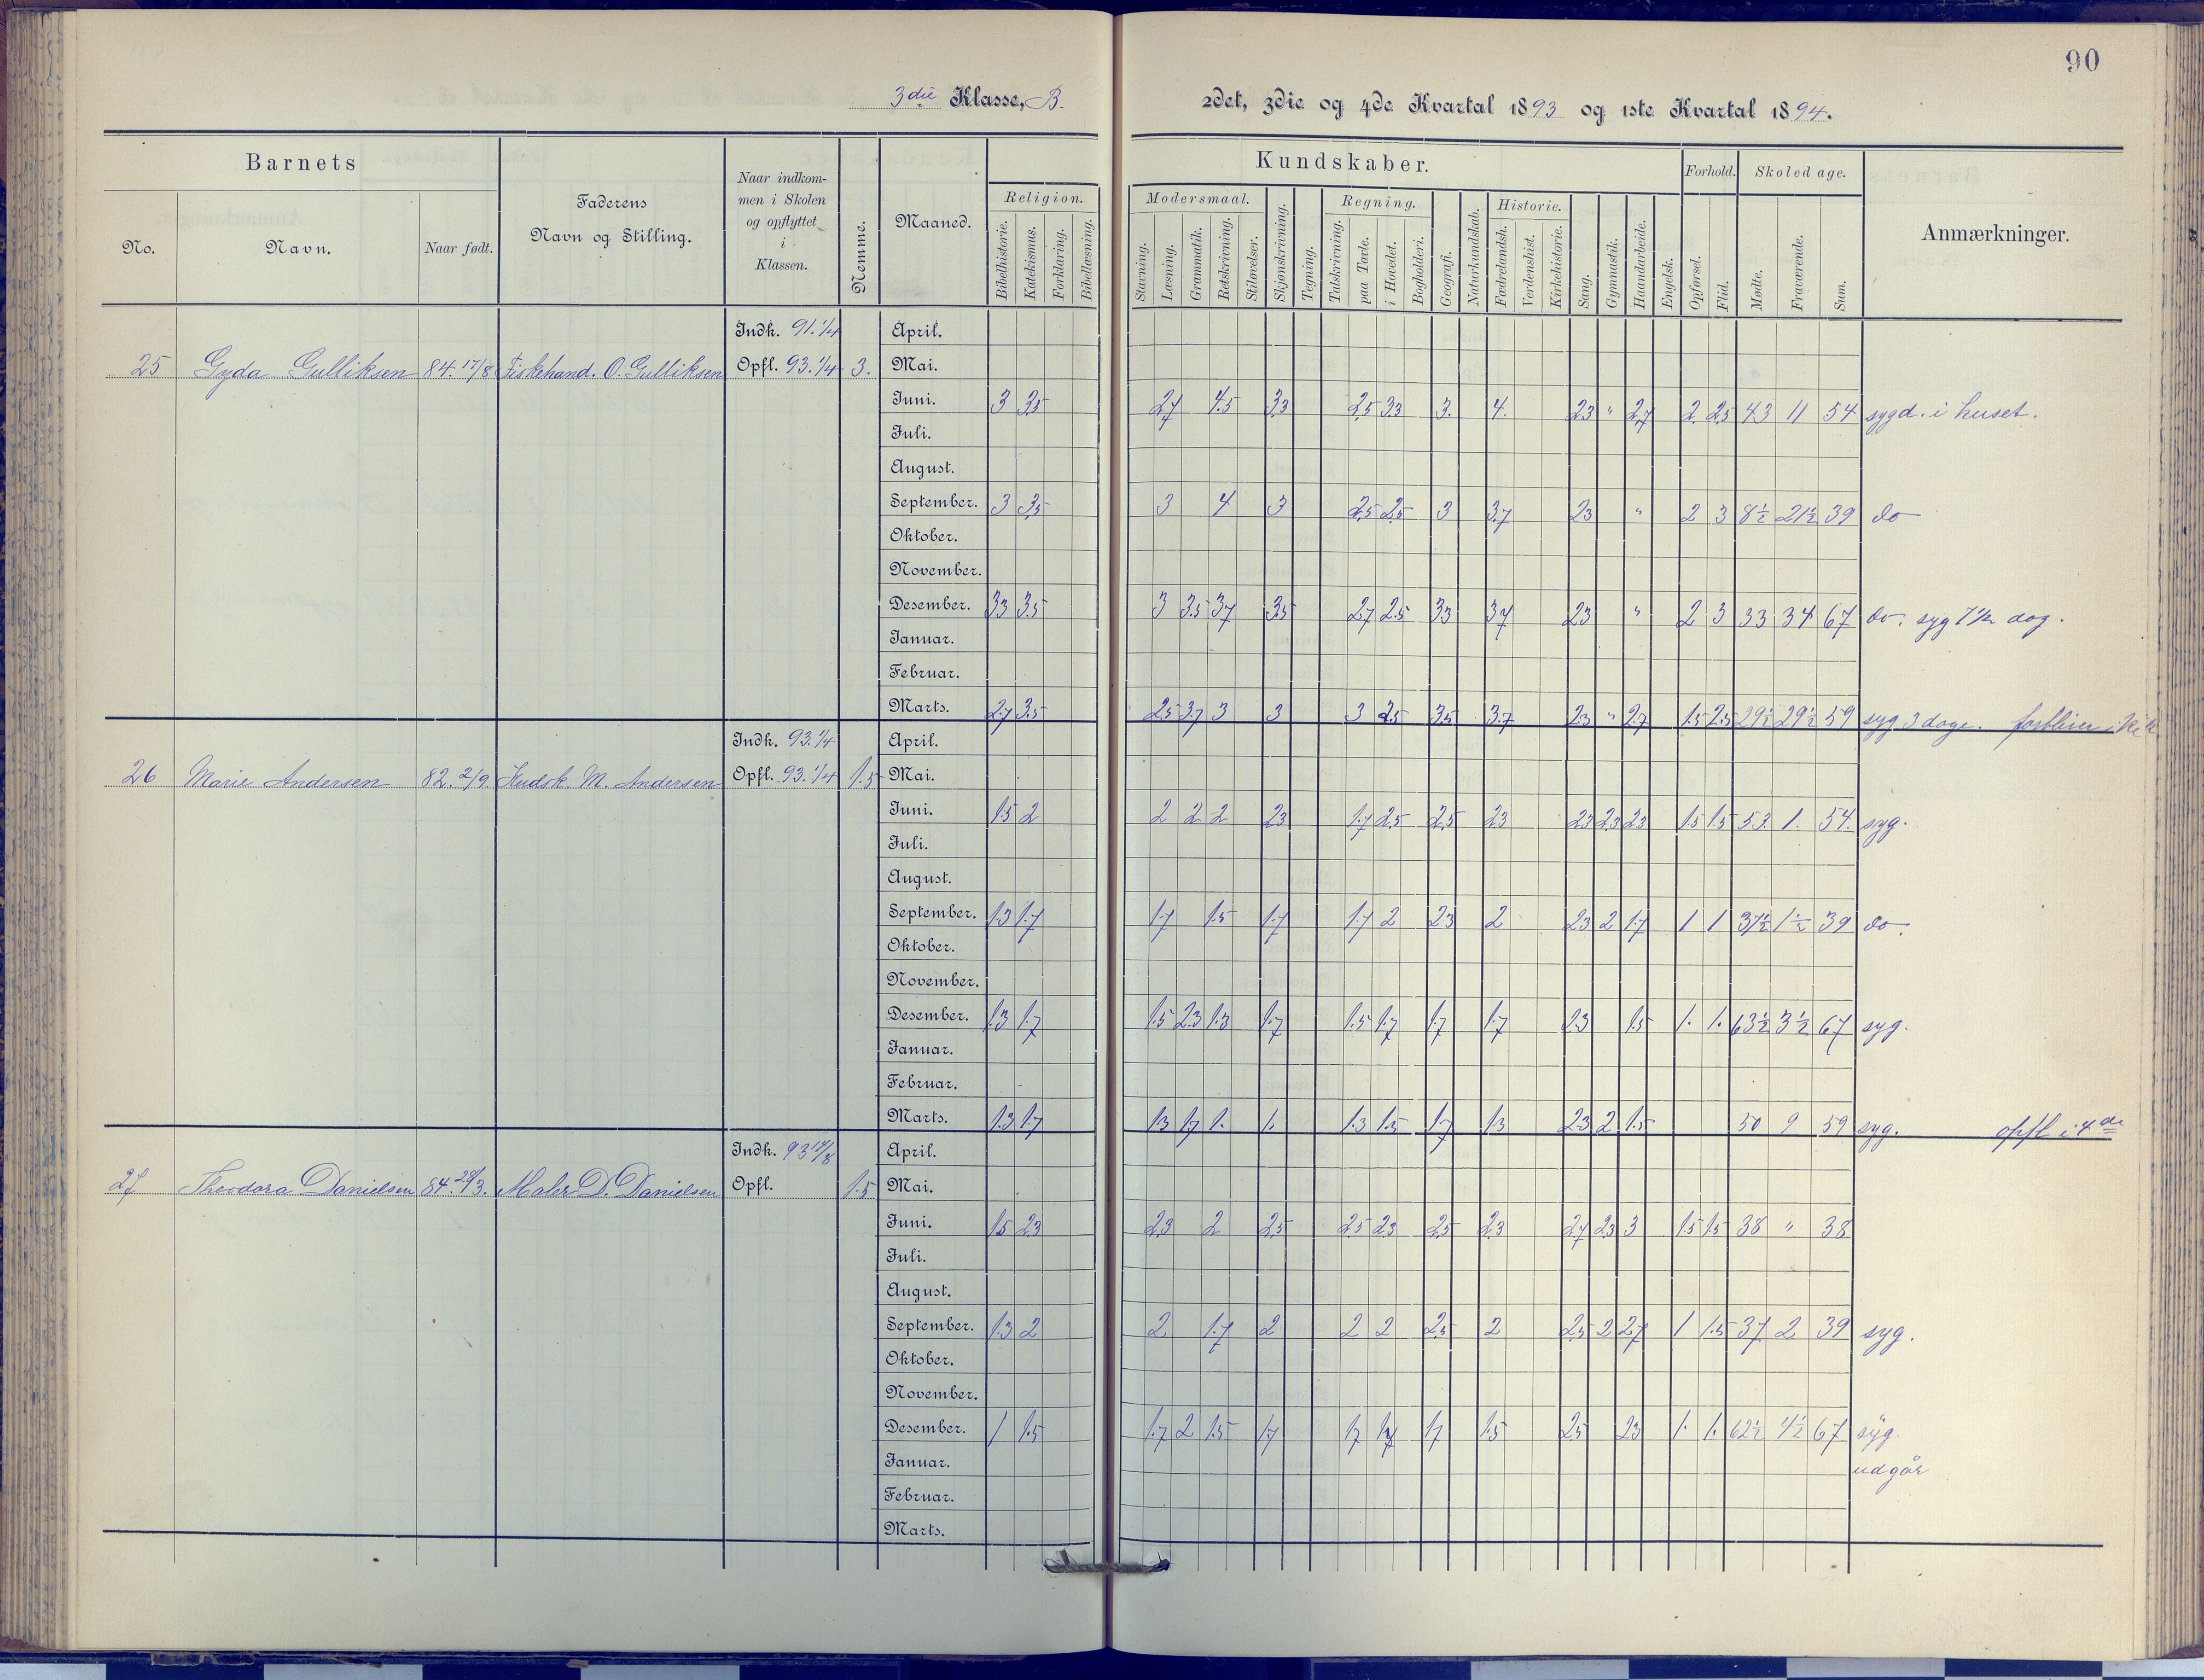 90
3die Klasse, B.
2det, 3die og 4de Kvartal 1893 og 1ste Kvartal 1894.
Barnets
No.
Navn.
Naar født.
Faderens
Navn og Stilling.
Naar indkom-
men i Skolen
og opflyttet
i
Klassen.
Nemme.
Maaned.
Kundskaber.
Religion.
Bibelhistorie.
Katekismus.
Forklaring.
Bibellæsning.
Modersmaal.
Stavning.
Læsning.
Grammatik.
Retskrivning.
Stiløvelser.
Skjønskrivning.
Tegning.
Regning.
Talskrivning.
paa Tavle.
i Hovedet.
Bogholderi.
Geografi.
Naturkundskab.
Historie.
Fædrelandsh.
Verdenshist.
Kirkehistorie.
Sang.
Gymnastik.
Haandarbeide.
Engelsk.
Forhold.
Opførsel.
Flid.
Skoledage.
Mødte.
Fraværende.
Sum.
Anmærkninger.
Indk. 91.1/4 April.
25 Gyda Gulliksen 84.17/8 Fiskehand. O. Gulliksen Opfl. 93.1/4 3. Mai.
Juni. 3 3.5 2.7 4.5 3.3 2.5 3.3 3. 4. 2.3 " 2.7 2. 2.5 43 11 54 sygd. i huset.
Juli.
August.
September. 3 3.5 3 4 3 2.5 2.5 3 3.7 2.3 " 2 3 8½ 21½ 39 do
Oktober.
November.
Desember. 3.3 3.5 3 3.5 3.7 3.5 2.7 2.5 3.3 3.7 2.3 " 2 3 33 34 67 do. syg 7½ dag.
Januar.
Februar.
Marts. 2.7 3.5 2.5 3.7 3 3 3 2.5 3.5 3.7 2.3 " 2.7 1.5 2.5 29½ 29½ 59 syg 3 dage. forbliver i
Indk. 93.1/4 April.
26 Marie Andersen 82.2/9. Kudsk. M. Andersen Opfl. 93.1/4 1.5 Mai.
Juni. 1.5 2 2 2 2 2.3 1.7 2.5 2.5 2.3 2.3 2.3 2.3 1.5 1.5 53 1. 54. syg.
Juli.
August.
September. 1.3 1.7 1.7 1.5 1.7 1.7 2 2.3 2 2.3 2 1.7 1 1 37½ 1½ 39 do.
Oktober.
November.
Desember. 1.3 1.7 1.5 2.3 1.3 1.7 1.5 1.7 1.7 1.7 2.3 1.5 1. 1. 63½ 3½ 67 syg.
Januar.
Februar.
Marts. 1.3 1.7 1.3 1.7 1. 1. 1.3 1.5 1.7 1.3 2.3 2 1.5 50 9 59 syg. opfl i 4de
Indk. 93 17/8 April.
27 Theodora Danielsen 84.29/3. Maler D. Danielsen Opfl. 1.5 Mai.
Juni. 1.5 2.3 2.3 2 2.5 2.5 2.3 2.5 2.3 2.7 2.3 3 1.5 1.5 38 " 38
Juli.
August.
September. 1.3 2 2 1.7 2 2 2 2.5 2 2.5 2 2.7 1 1.5 37 2 39 syg.
Oktober.
November.
Desember. 1 1.5 1.7 2 1.5 1.7 1.7 1.7 1.7 1.5 2.5 2.3 1. 1. 62½ 4½ 67 syg.
Januar. udgår
Februar.
Marts.